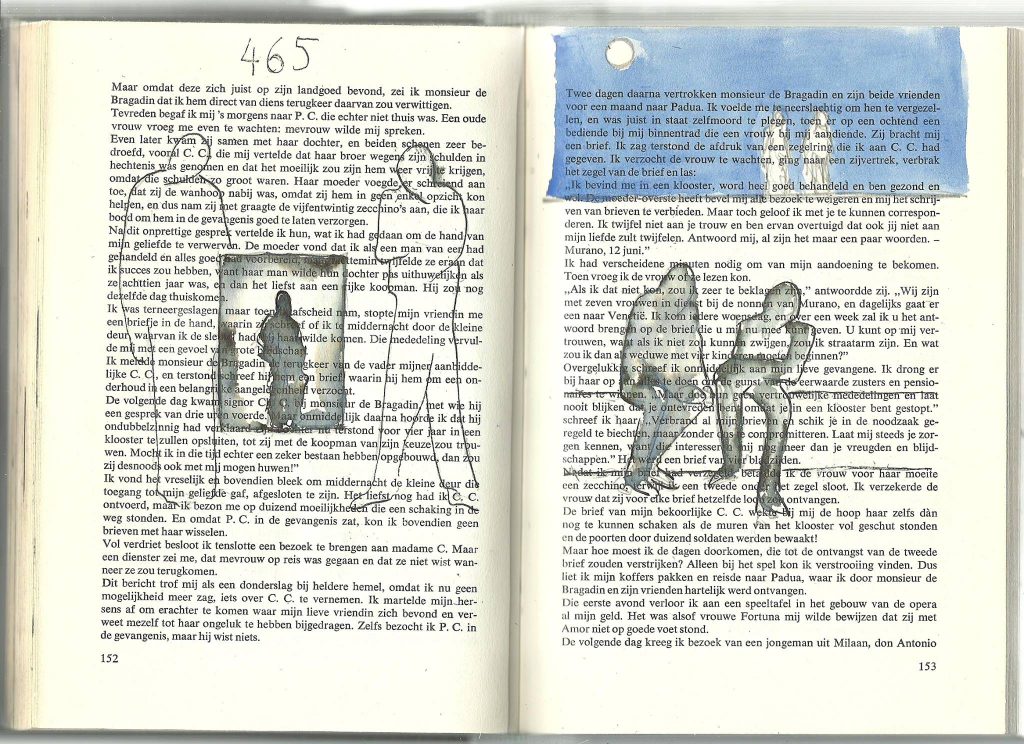 465
Maar omdat deze zich juist op zijn landgoed bevond, zei ik monsieur de
Bragadin dat ik hem direct van diens terugkeer daarvan zou verwittigen.
Tevreden begaf ik mij 's morgens naar P. C. die echter niet thuis was. Een oude
vrouw vroeg me even te wachten: mevrouw wilde mij spreken.
Even later kwam zij samen met haar dochter, en beiden schenen zeer be-
droefd, vooral C. C. die mij vertelde dat haar broer wegens zijn schulden in
hechtenis was genomen en dat het moeilijk zou zijn hem weer vrij te krijgen,
omdat die schulden zo groot waren. Haar moeder voegde er schreiend aan
toe, dat zij de wanhoop nabij was, omdat zij hem in geen enkel opzicht kon
helpen, en dus nam zij met graagte de vijfentwintig zecchino's aan, die ik haar
bood om hem in de gevangenis goed te laten verzorgen.
Na dit onprettige gesprek vertelde ik hun, wat ik had gedaan om de hand van
mijn geliefde te verwerven. De moeder vond dat ik als een man van eer had
gehandeld en alles goed had voorbereid, maar niettemin twijfelde ze eraan dat
ik succes zou hebben, want haar man wilde hun dochter pas uithuwelijken als
ze achttien jaar was, en dan het liefst aan een rijke koopman. Hij zou nog
dezelfde dag thuiskomen.
Ik was terneergeslagen maar toen ik afscheid nam, stopte mijn vriendin me
een briefje in de hand, waarin zij schreef of ik te middernacht door de kleine
deur, waarvan ik de sleutel had, bij haar wilde komen. Die mededeling vervul-
de mij met een gevoel van grote blijdschap.
Ik meldde monsieur de Bragadin de terugkeer van de vader mijner aanbidde-
lijke C. C., en terstond schreef hij hem een brief waarin hij hem om een on-
derhoud in een belangrijke aangelegenheid verzocht.
De volgende dag kwam signor Ch. C. bij monsieur de Bragadin, met wie hij
een gesprek van drie uren voerde. Maar onmiddellijk daarna hoorde ik dat hij
ondubbelzinnig had verklaard zijn dochter nu terstond voor vier jaar in een
klooster te zullen opsluiten, tot zij met de koopman van zijn keuze zou trou-
wen. Mocht ik in die tijd echter een zeker bestaan hebben opgebouwd, dan zou
zij desnoods ook met mij mogen huwen!”
Ik vond het vreselijk en bovendien bleek om middernacht de kleine deur die
toegang tot mijn geliefde gaf, afgesloten te zijn. Het liefst nog had ik C. C.
ontvoerd, maar ik bezon me op duizend moeilijkheden die een schaking in de
weg stonden. En omdat P. C. in de gevangenis zat, kon ik bovendien geen
brieven met haar wisselen.
Vol verdriet besloot ik tenslotte een bezoek te brengen aan madame C. Maar
een dienster zei me, dat mevrouw op reis was gegaan en dat ze niet wist wan-
neer ze zou terugkomen.
Dit bericht trof mij als een donderslag bij heldere hemel, omdat ik nu geen
mogelijkheid meer zag, iets over C. C. te vernemen. Ik martelde mijn her-
sens af om erachter te komen waar mijn lieve vriendin zich bevond en ver-
weet mezelf tot haar ongeluk te hebben bijgedragen. Zelfs bezocht ik P. C. in
de gevangenis, maar hij wist niets.
152
Twee dagen daarna vertrokken monsieur de Bragadin en zijn beide vrienden
voor een maand naar Padua. Ik voelde me te neerslachtig om hen te vergezel-
len, en was juist in staat zelfmoord te plegen, toen er op een ochtend een
bediende bij mij binnentrad die een vrouw bij mij aandiende. Zij bracht mij
een brief. Ik zag terstond de afdruk van een zegelring die ik aan C. C. had
gegeven. Ik verzocht de vrouw te wachten, ging een zijvertrek, verbrak
het zegel van de brief en las:
„Ik bevind me in een klooster, word heel goed behandeld en ben gezond en
wel. De moeder-overste heeft bevel mij alle bezoek te weigeren en mij het schrij-
ven van brieven te verbieden. Maar toch geloof ik met je te kunnen correspon-
deren. Ik twijfel niet aan je trouw en ben ervan overtuigd dat ook jij niet aan
mijn liefde zult twijfelen. Antwoord mij, al zijn het maar een paar woorden. –
Murano, 12 juni.”
Ik had verscheidene minuten nodig om van mijn aandoening te bekomen.
Toen vroeg ik de vrouw of ze lezen kon.
„Als ik dat niet kon, zou ik zeer te beklagen zijn,” antwoordde zij. „Wij zijn
met zeven vrouwen in dienst bij de nonnen van Murano, en dagelijks gaat er
een naar Venetië. Ik kom iedere woensdag, en over een week zal ik u het ant-
woord brengen op de brief die u mij nu mee kunt geven. U kunt op mij ver-
trouwen, want als ik niet zou kunnen zwijgen, was ik straatarm zijn. En wat
zou ik dan als weduwe met vier kinderen moeten beginnen?”
Overgelukkig schreef ik onmiddellijk aan mijn lieve gevangene. Ik drong er
bij haar op aan te doen gunst eerwaarde zusters en pensio-
naires te winnen. „Maar ga je vertrouwelijke mededelingen en laat
nooit blijken dat je ontevreden omdat je in een klooster bent gestopt.”
schreef ik haar. „Verbrand al mijn brieven en schik je in de noodzaak ge-
regeld te biechten, maar zonder ons te compromitteren. Laat mij steeds je zor-
gen kennen, want die interesseren mij nog meer dan je vreugden en blijd-
schappen.” Het werd een brief van vier bladzijden.
Nadat ik mijn brief had verzegeld, betaalde ik de vrouw voor haar moeite
een zecchino, terwijl ik een tweede onder het zegel sloot. Ik verzekerde de
vrouw dat zij voor elke brief hetzelfde loon zou ontvangen.
De brief van mijn bekoorlijke C. C. wekte bij mij de hoop haar zelfs dàn
nog te kunnen schaken als de muren van het klooster vol geschut stonden
en de poorten door duizend soldaten werden bewaakt!
Maar hoe moest ik de dagen doorkomen, die tot de ontvangst van de tweede
brief zouden verstrijken? Alleen bij het spel kon ik verstrooiing vinden. Dus
liet ik mijn koffers pakken en reisde naar Padua, waar ik door monsieur de
Bragadin en zijn vrienden hartelijk werd ontvangen.
Die eerste avond verloor ik aan een speeltafel in het gebouw van de opera
al mijn geld. Het was alsof vrouwe Fortuna mij wilde bewijzen dat zij met
Amor niet op goede voet stond.
De volgende dag kreeg ik bezoek van een jongeman uit Milaan, don Antonio
153